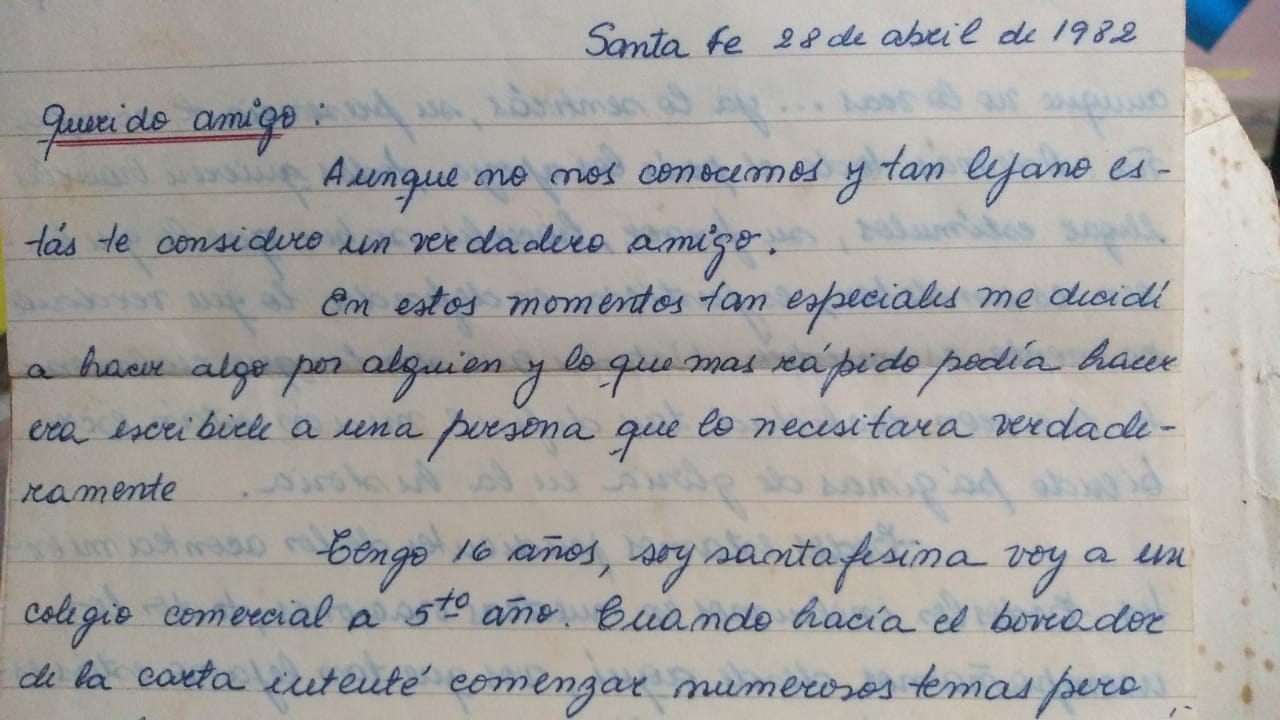 Santa Fe 28 de abril de 1982
Querido amigo:
Aunque no nos conocemos y tan lejano es-
tás te considero un verdadero amigo.
En estos momentos tan especiales me decidí
a hacer algo por alguien y lo que mas rápido podía hacer
era escribirle a una persona que lo necesitara verdade-
ramente
Tengo 16 años, soy santafesina voy a un
colegio comercial a 5to año. Cuando hacía el borrador
de la carta intenté comenzar numerosos temas pero